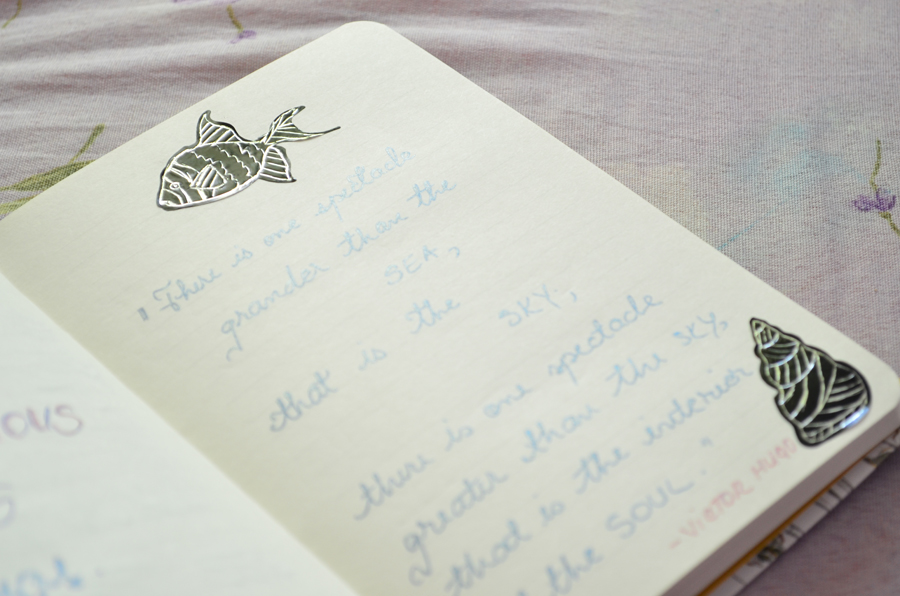 ious
"There is one spectacle
grander than the
SEA,
that is the
SKY;
there is one spectacle
greater than the SKY,
that is the interior
of the SOUL."
-VICTOR HUGO